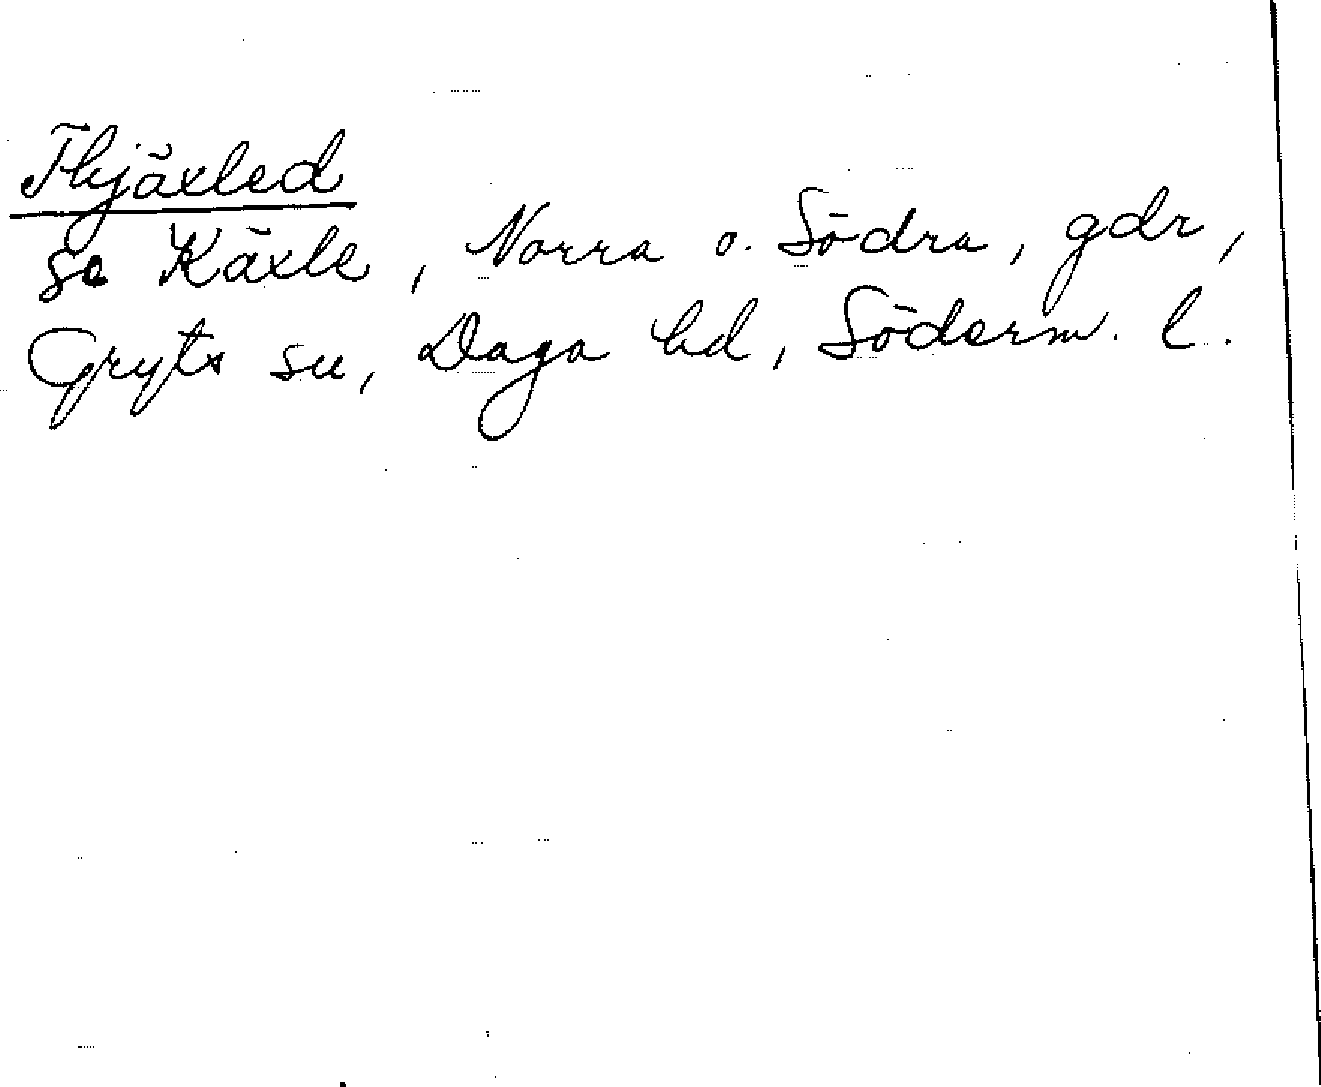 Thjäxled
se Käxle, Norra o. Södra, gdr,
Gryts sn, Daga hd, Söderm. l.